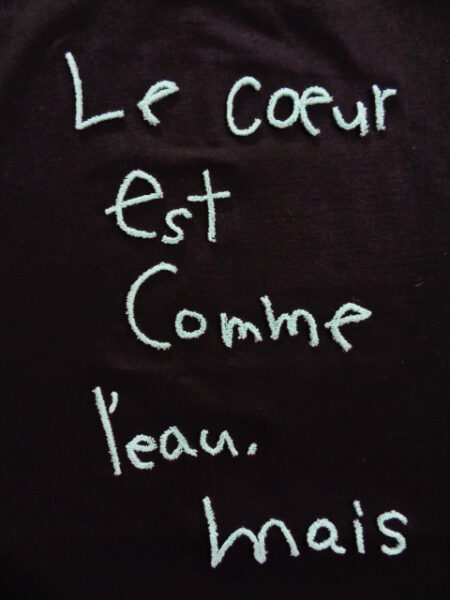 Le coeur
est
Comme
l'eau.
mais